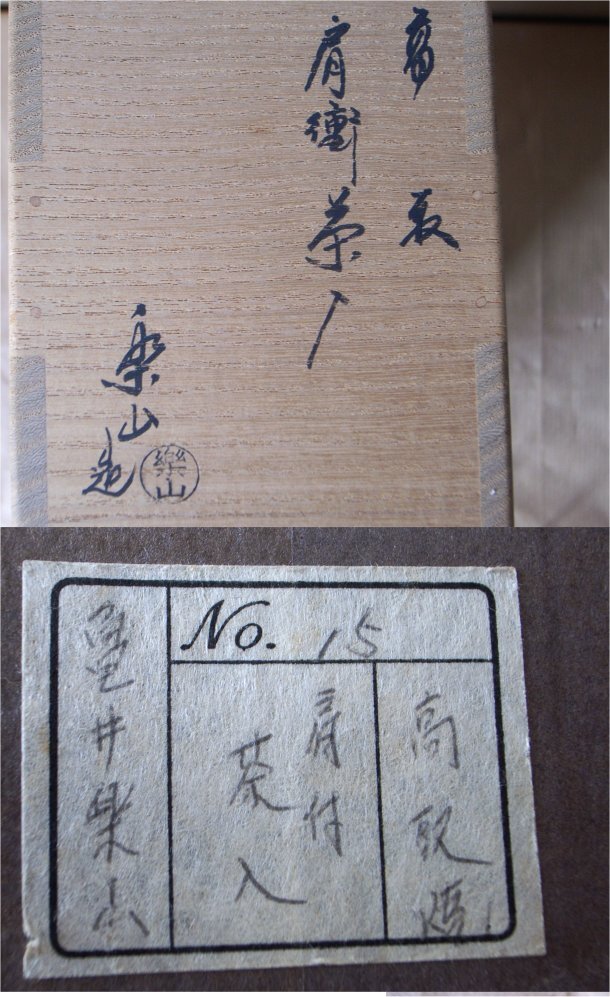 高取
肩衝茶入
楽山造
樂山
No. 15
高取焼
肩付
茶入
亀井樂山